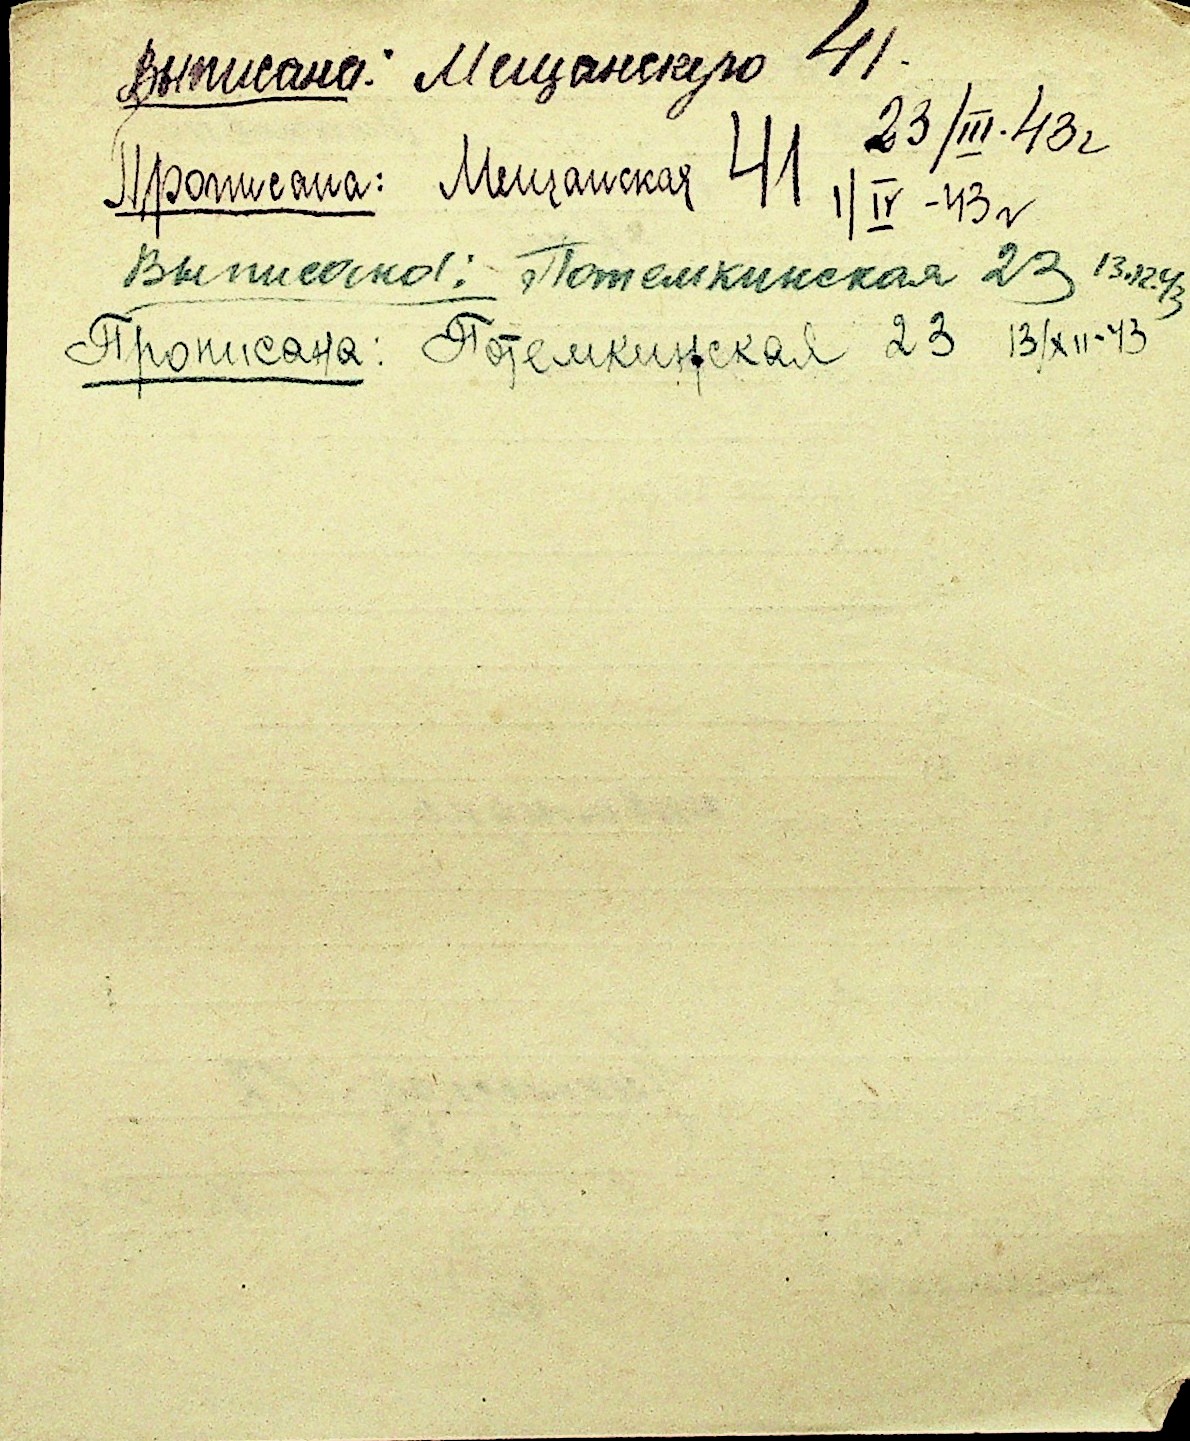 Выписана: Мещанскую 41.
23/III-43г
Прописана: Мещанская 41 1/IV-43г
Выписана: Потемкинская 23 13.12.43
Прописана: Потемкинская 23 13/XII-43